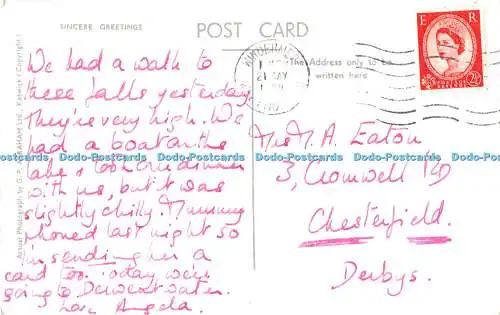 SINCERE GREETINGS
POST CARD
The Address only to be
written here
E R
2½
We had a walk to
these falls yesterday,
they're very high. We
had a boat on the
lake & took our dinner
with us, but it was
slightly chilly. Mummy
phoned last night so
I'm sending her a
card too. Today we're
going to Derwentwater.
Love Angela.
Mrs M. A. Eaton
3, Cromwell Rd
Chesterfield.
Derbys.
Actual Photograph by G. P. ABRAHAM Ltd., Keswick (Copyright)
Dodo-Postcards Dodo-Postcards Dodo-Postcards Dodo-Postcards Dodo-Postcards Dodo-Postcards Dodo-Postcards